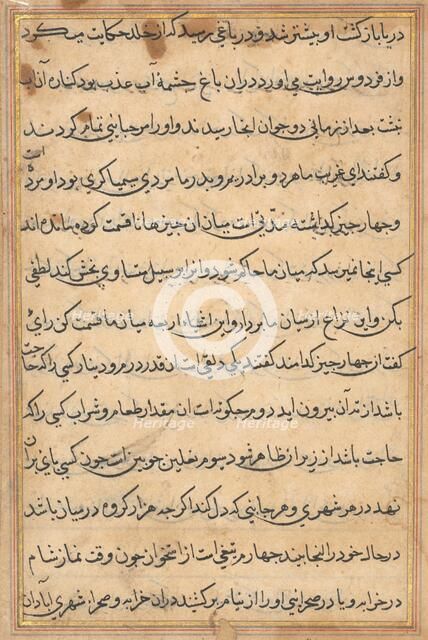 در یا باز کشت او پیشتر شد و در باغی رسید که از خلد حکایت میکرد
و از فردوس روایت می آورد در ان باغ چشمهٔ آب عذب بود کنارهٔ آن آب
نشست بعد از زمانی دو جوان انجا رسیدند و او را مرحبایی تمام کردند
و کفتند ای غریب ما هر دو برادریم و پدر ما مردی سیمیاکری بود او مرده است
و چهار چیز کذاشته مدتی است میان ما ان چیزها نا قسمت کرده مانده اند
کسی انجا نمیرسد که میان ما حاکم شود و انرا بر سبیل متساوی بخش کند لطفی
بکن و این نزاع از میان ما بردار و این اشیاء اربعه میان ما قسمت کن رای
کفت از چهار چیز کدامند کفتند یکی دلقی است ان قدر درم و دینار کسی را که حاجت
باشد از ته آن بیرون اید دوم است ان مقدار طعام و شراب کسی را که
حاجت باشد از زیر ان ظاهر شود سوم نعلین چوبین است چون کسی پای بران
نهد در هر شهری و هر جایی که دل کند اکرچه هزار کروه در میان باشد
در حال خود را انجا بیند چهارم تیغی است از استخوان چون وقت نماز شام
در خرابه و یا در صحرایی او را از نیام برکشند دران خرابه و صحرا شهری آبادان
© Heritage
Heritage Heritage Heritage